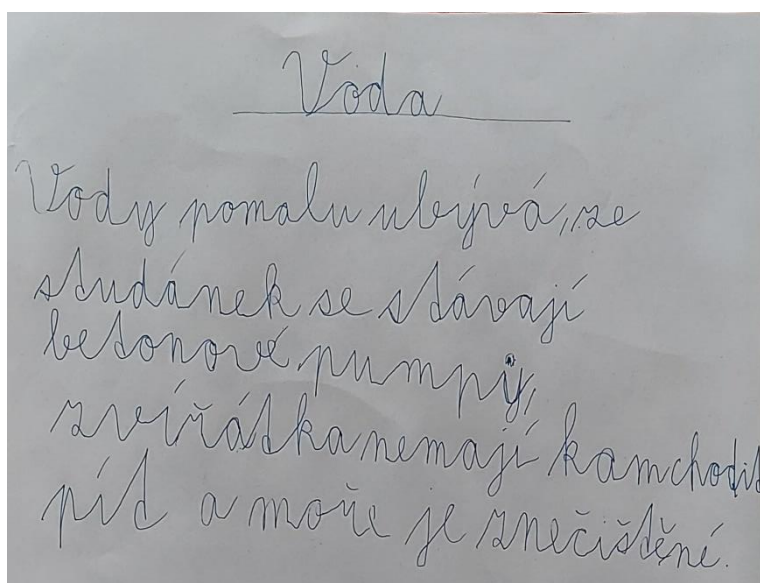 Voda
Vody pomalu ubývá, ze
studánek se stávají
betonové pumpy,
zvířátka nemají kam chodit
pít a moře je znečištěné.